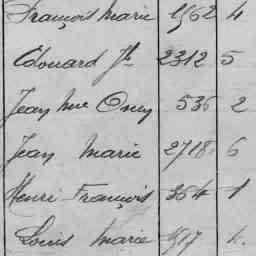 François Marie 1962 4
Edouard Jh 2312 5
Jean Mie Oney 536 2
Jean Marie 2718 6
Henri François 364 1
Louis Marie 1917 4.